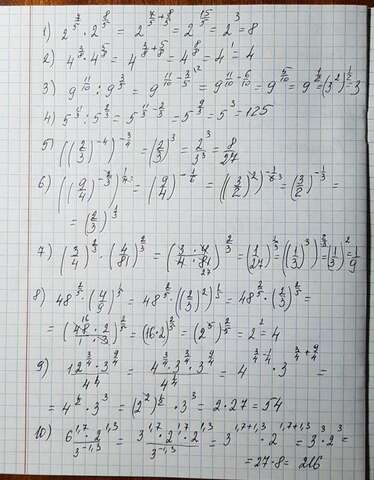 1) 2^{7/5} · 2^{8/5} = 2^{7/5 + 8/5} = 2^{15/5} = 2^3 = 8
2) 4^{3/8} · 4^{5/8} = 4^{3/8 + 5/8} = 4^{8/8} = 4^1 = 4
3) 9^{11/10} : 9^{3/5} = 9^{11/10 - 3/5 \2} = 9^{11/10 - 6/10} = 9^{5/10} = 9^{1/2} = (3^2)^{1/2} = 3
4) 5^{11/3} : 5^{2/3} = 5^{11/3 - 2/3} = 5^{9/3} = 5^3 = 125
5) ((2/3)^{-4})^{-3/4} = (2/3)^3 = 2^3/3^3 = 8/27
6) ((9/4)^{-2/3})^{1/4} = (9/4)^{-1/6} = ((3/2)^2)^{-1/6 3} = (3/2)^{-1/3} =
= (2/3)^{1/3}
7) (3/4)^{2/3} · (4/81)^{2/3} = (3 · 4/4 · 81 27)^{2/3} = (1/27)^{2/3} = ((1/3)^3)^{2/3} = (1/3)^2 = 1/9
8) 48^{2/5} · (4/9)^{1/5} = 48^{2/5} · ((2/3)^2)^{1/5} = 48^{2/5} · (2/3)^{2/5} =
= (48 16 · 2/1 · 3)^{2/5} = (16·2)^{2/5} = (2^5)^{2/5} = 2^2 = 4
9) 12^{3/4} · 3^{9/4}/4^{1/4} = 4^{3/4} · 3^{3/4} · 3^{9/4}/4^{1/4} = 4^{3/4 - 1/4} · 3^{3/4 + 9/4} =
= 4^{1/2} · 3^3 = (2^2)^{1/2} · 3^3 = 2 · 27 = 54
10) 6^{1,7} · 2^{1,3}/3^{-1,3} = 3^{1,7} · 2^{1,7} · 2^{1,3}/3^{-1,3} = 3^{1,7+1,3} · 2^{1,7+1,3} = 3^3 · 2^3 =
= 27·8 = 216